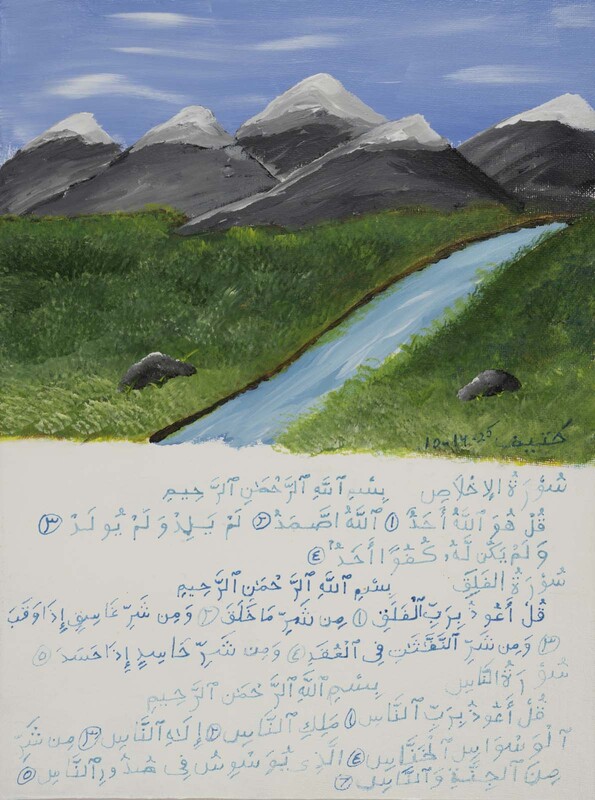 10-14-25
سُوْرَةُ الإِخْلَاصِ بِسْمِ ٱللَّهِ ٱلرَّحْمَٰنِ ٱلرَّحِيمِ
قُلْ هُوَ ٱللَّهُ أَحَدٌ ١ ٱللَّهُ ٱصَّمَدُ ٢ لَمْ يَلِدْ وَلَمْ يُولَدْ ٣
وَلَمْ يَكُن لَّهُۥ كُفُوًا أَحَدٌۢ ٤
سُوْرَةُ الفَلَقِ بِسْمِ ٱللَّهِ ٱلرَّحْمَٰنِ ٱلرَّحِيمِ
قُلْ أَعُوذُ بِرَبِّ ٱلْفَلَقِ ١ مِن شَرِّ مَا خَلَقَ ٢ وَمِن شَرِّ غَاسِقٍ إِذَا وَقَبَ
٣ وَمِن شَرِّ ٱلنَّفَّٰثَٰتِ فِى ٱلْعُقَدِ ٤ وَمِن شَرِّ حَاسِدٍ إِذَا حَسَدَ ٥
سُوْرَةُ النَّاسِ بِسْمِ ٱللَّهِ ٱلرَّحْمَٰنِ ٱلرَّحِيمِ
قُلْ أَعُوذُ بِرَبِّ ٱلنَّاسِ ١ مَلِكِ ٱلنَّاسِ ٢ إِلَٰهِ ٱلنَّاسِ ٣ مِن شَرِّ
ٱلْوَسْوَاسِ ٱلْخَنَّاسِ ٤ ٱلَّذِى يُوَسْوِسُ فِى صُدُورِ ٱلنَّاسِ ٥
مِنَ ٱلْجِنَّةِ وَٱلنَّاسِ ٦